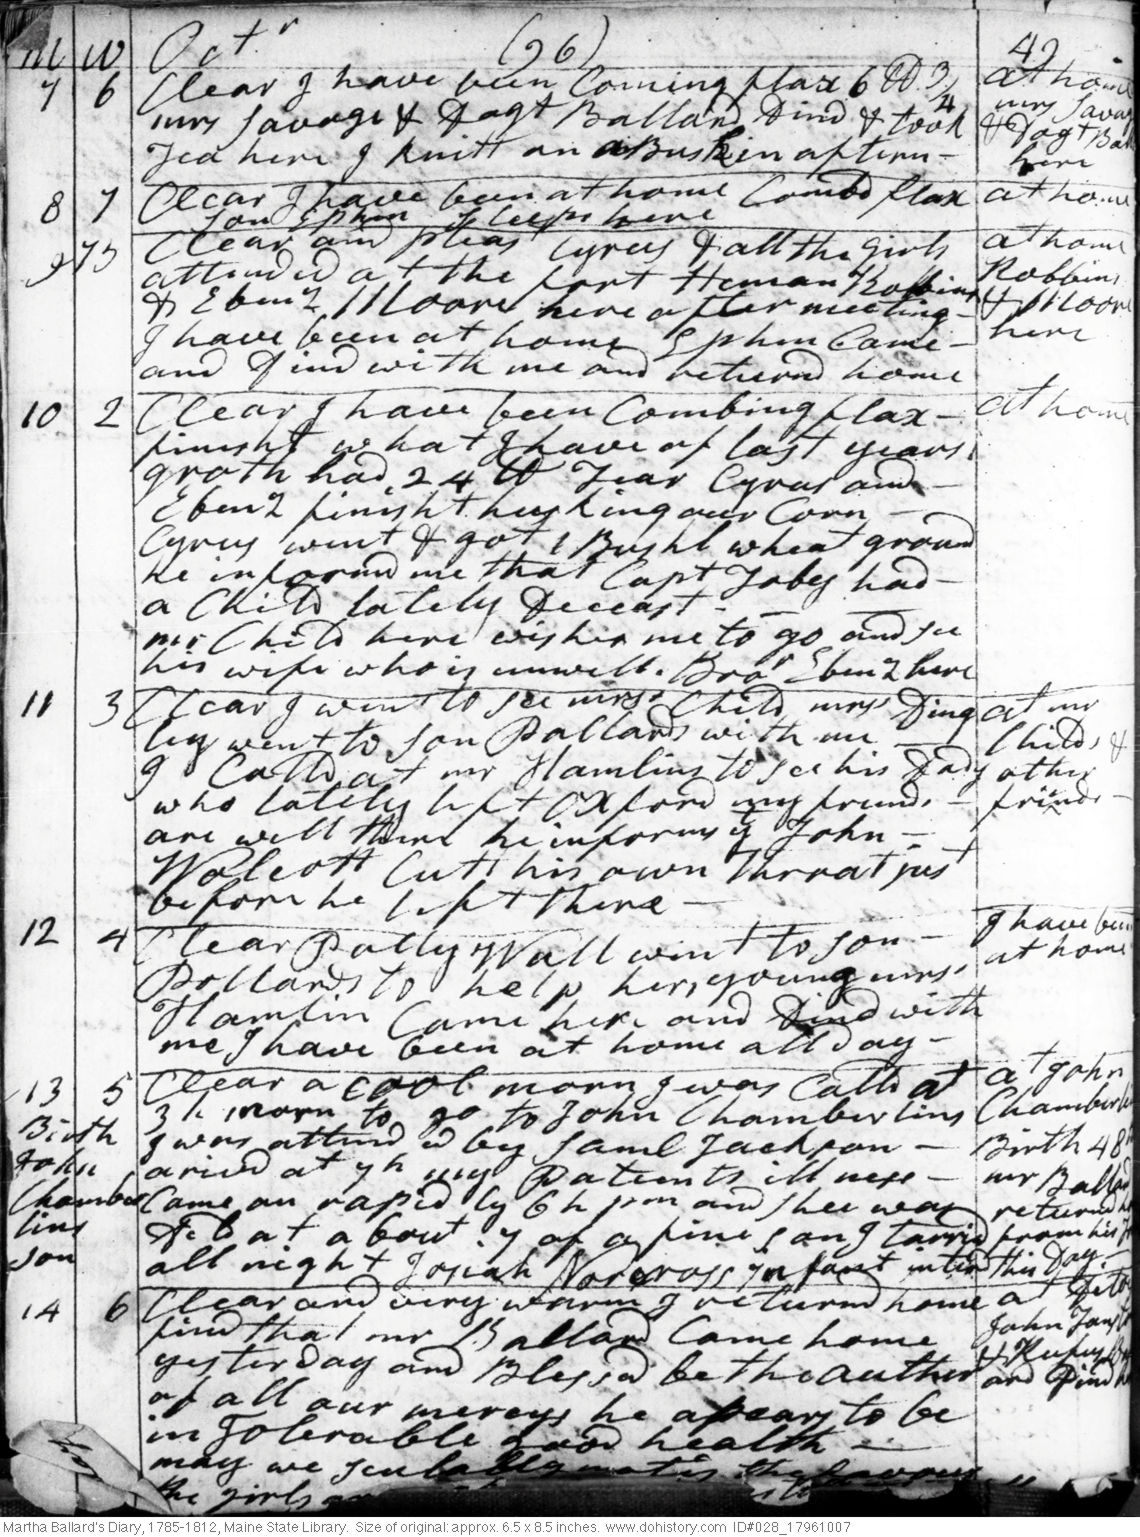 M W Octr (96) 49
7 6 Clear I have been Coming flax 6 lb 3/4 at home
mrs Savage & Dagt Ballard Dind & took mrs Savage
Tea here I knitt on a Buskin aftern - & Dagt Ball
here
8 7 Clear I have been at home Combd flax at home
son Ephm sleeps here
9 Clear and pleast Cyrus & all the girls at home
attended at the fort Heman Robbins Robbins
& Ebenz Moore here after meeting - & Moore
I have been at home Ephm Came - here
and Dind with me and returnd home
10 2 Clear I have been Combing flax - at home
finisht what I have of last years
groth had 24 lb Tear Cyrus and -
Ebenz finisht husking our Corn -
Cyrus went & got 1 Bushl wheat ground
he informd me that Capt Tobey had -
a Child lately Deceast -
mr Child here wishes me to go and see
his wife who is unwell. Bror Ebenz here
11 3 Clear I went to see mrs Child mrs Ding at mr
ley went to son Pollards with me - Childs &
I Calld at mr Hamlins to see his Dady other
who lately left Oxford my frinds - frinds -
are well there he informs yt John -
Wolcott Cutt his own Throat just
before he left there -
12 4 Clear Polly Wall went to son - I have been
Pollards to help her, young mrs at home
Hamlin Came here and Dind with
me I have been at home all day -
13 5 Clear a cool morn I was Calld at at John
3 h morn to go to John Chamberlins Chamberlin
Birth I was attinded by Saml Jackson - Birth 48
John arivd at 7h my Patients illness - mr Ballard
Chamber Came on rapidly 6 h pm and shee was returnd
lins Dld at about 7 of a fine son I tarrid from his
son all night Josiah Norcross infant interd this Day -
14 6 Clear and very warm I returnd home at Ditto
find that mr Ballard Came home John
yesterday and Blessed be the author & Rufus
of all our mercys he apears to be and Dind
in Tolerable good health -
may we sencably notis the favours
the girls
Martha Ballard's Diary, 1785-1812, Maine State Library. Size of original: approx. 6.5 x 8.5 inches. www.dohistory.com ID#028_17961007